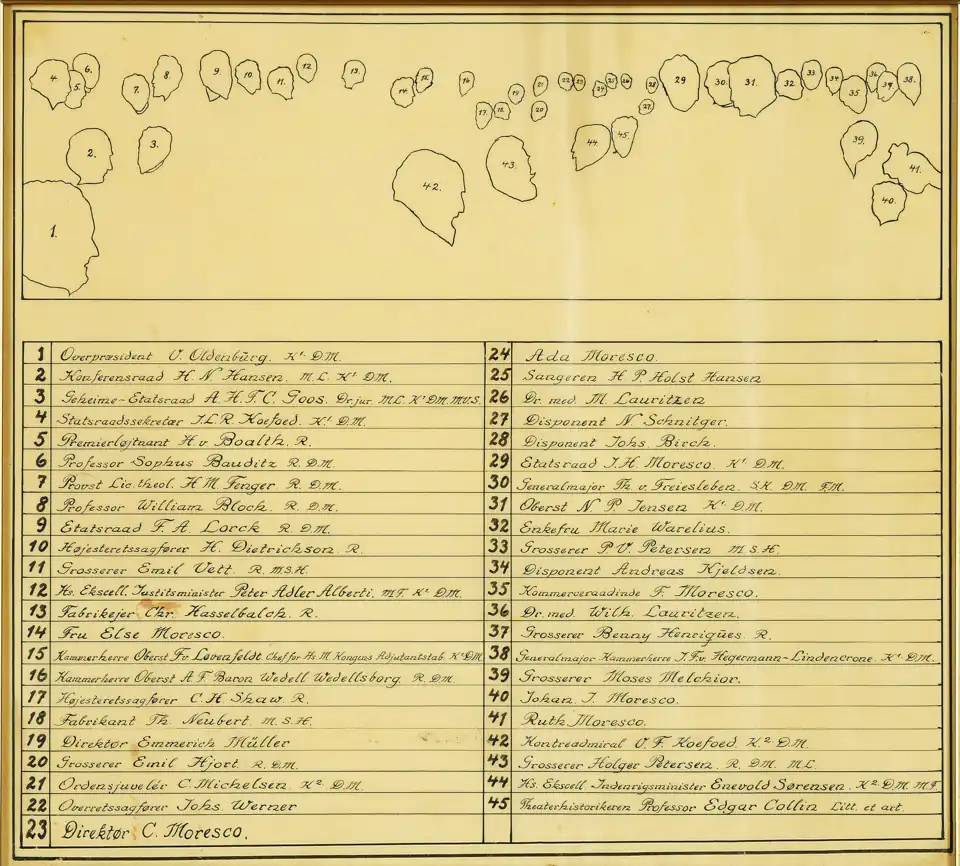 4. 6. 5. 7. 8. 9. 10. 11. 12 13. 14. 15. 16 17. 18. 19 20. 21 22 23 24 25 26 27. 28 29 30. 31. 32 33 34 35 36 37. 38.
2. 3. 44. 45. 39.
1. 42. 43. 41.
40.
1 Overpræsident V. Oldenbürg. K¹ DM.
2 Konferensraad H. N. Hansen. M.L. K¹ DM.
3 Geheime-Etatsraad A. H. F. C. Goos. Dr.jur. M.L. K¹ DM. M.V.S.
4 Statsraadssekretær J.L.R. Koefoed. K¹ D.M.
5 Premierløjtnant H. v Boalth. R.
6 Professor Sophus Bauditz R. D.M.
7 Provst Lic. theol. H M Fenger R. D.M.
8 Professor William Bloch. R. D.M.
9 Etatsraad F. A. Lorck R. D.M.
10 Højesteretssagfører H. Dietrichson. R.
11 Grosserer Emil Vett. R. M.S.H.
12 Hs. Ekscell. Justitsminister Peter Adler Alberti. MF. K¹ DM.
13 Fabrikejer Chr. Hasselbalch. R.
14 Fru Else Moresco.
15 Kammerherre Oberst F.v Løvenfeldt. Chef for Hs. M. Kongens Adjutantstab. K¹ DM.
16 Kammerherre Oberst A F Baron Wedell Wedellsborg. R. DM.
17 Højesteretssagfører C. H. Shaw. R.
18 Fabrikant Th. Neubert. M. S.H.
19 Direktør Emmerich Müller
20 Grosserer Emil Hjort. R. D.M.
21 Ordensjuvelér C. Michelsen. K² D.M.
22 Overretssagfører Johs Werner
23 Direktør C. Moresco.
24 Ada Moresco.
25 Sangeren H P Holst Hansen
26 Dr. med. M. Lauritzen
27 Disponent N. Schnitger.
28 Disponent Johs. Birch.
29 Etatsraad J. H. Moresco. K¹ D.M.
30 Generalmajor Th. v. Freiesleben. S.K. DM. F.M.
31 Oberst N. P. Jensen K¹ D.M.
32 Enkefru Marie Warelius.
33 Grosserer P V. Petersen M. S. H.
34 Disponent Andreas Kjeldsen.
35 Kommerceraadinde F. Moresco.
36 Dr. med. Wilh. Lauritzen.
37 Grosserer Benny Henriqües. R.
38 Generalmajor Kammerherre J. F.v. Hegermann-Lindencrone. K¹ DM.
39 Grosserer Moses Melchior.
40 Johan. J. Moresco.
41 Ruth Moresco.
42 Kontreadmiral V. F. Koefoed. K² D.M.
43 Grosserer Holger Petersen. R. D.M. M.L.
44 Hs. Ekscell. Indenrigsminister Enevold Sørensen. K² D.M. M.F.
45 Theaterhistorikeren Professor Edgar Collin Litt. et art.